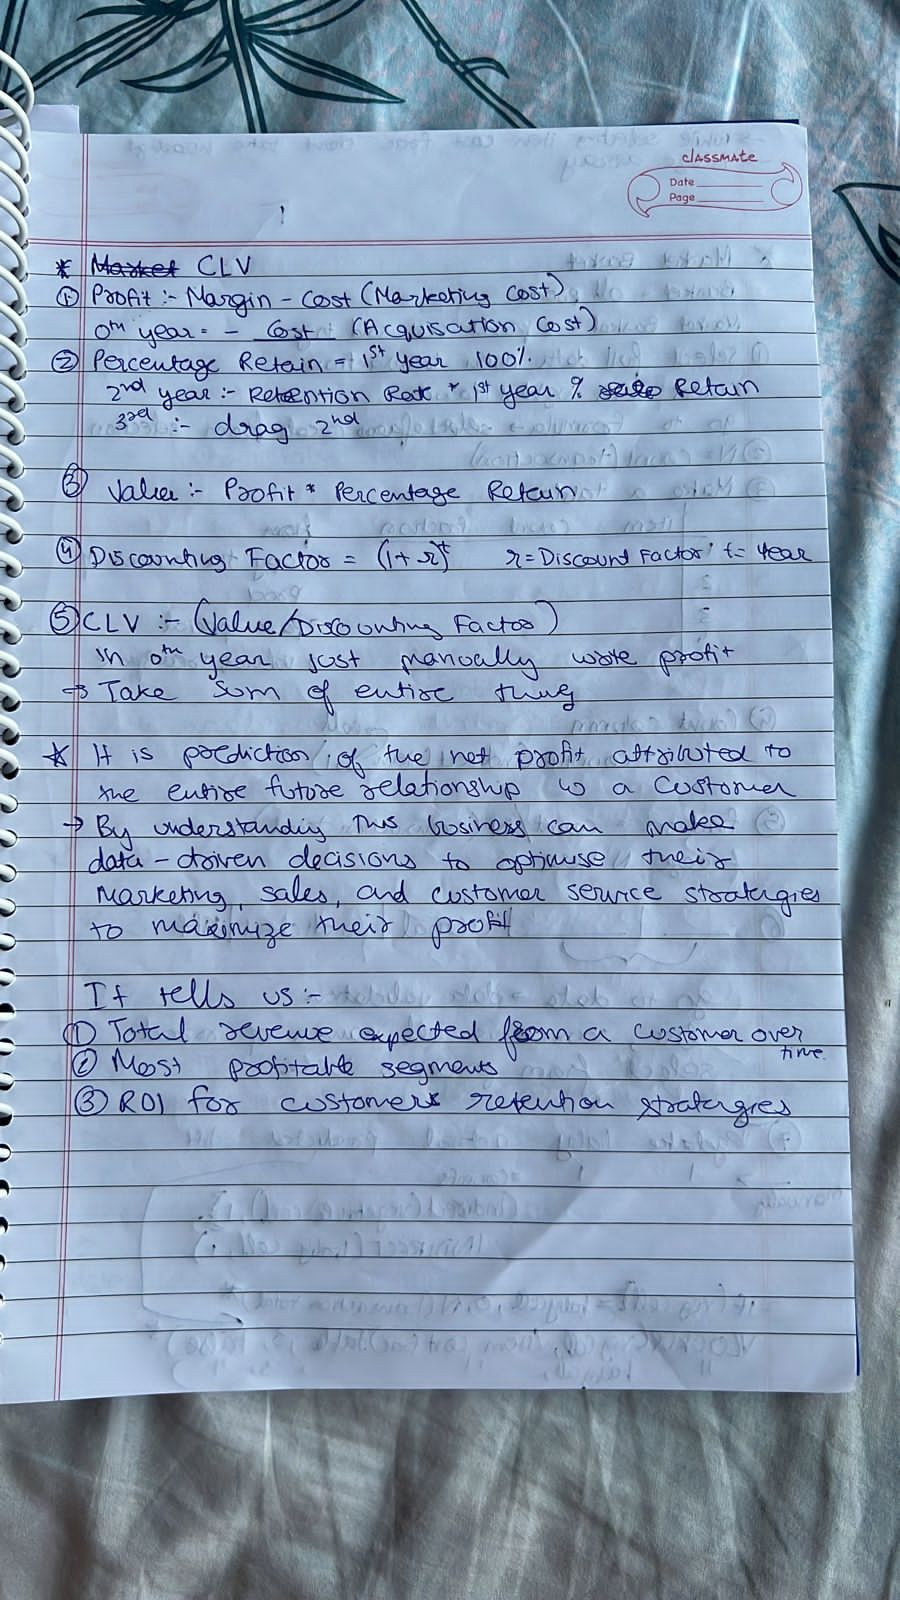 classmate
Date
Page
* Market CLV
① Profit :- Margin - Cost (Marketing Cost)
0th year = - Cost (Acquisation Cost)
② Percentage Retain = 1st year 100%.
2nd year :- Retention Rate * 1st year % Retain
3rd :- drag 2nd
③ Value :- Profit * Percentage Retain
④ Discounting Factor = (1+r)^t r = Discount Factor t = year
⑤ CLV :- (Value/Discounting Factor)
In 0th year just manually write profit
→ Take Sum of entire thing
* It is prediction of the net profit attributed to
the entire future relationship w a customer
→ By understanding this business can make
data-driven decisions to optimise their
marketing, sales, and customer service stratergies
to maximize their profit
It tells us :-
① Total revenue expected from a customer over
time.
② Most profitable segments
③ ROI for customers retention stratergies